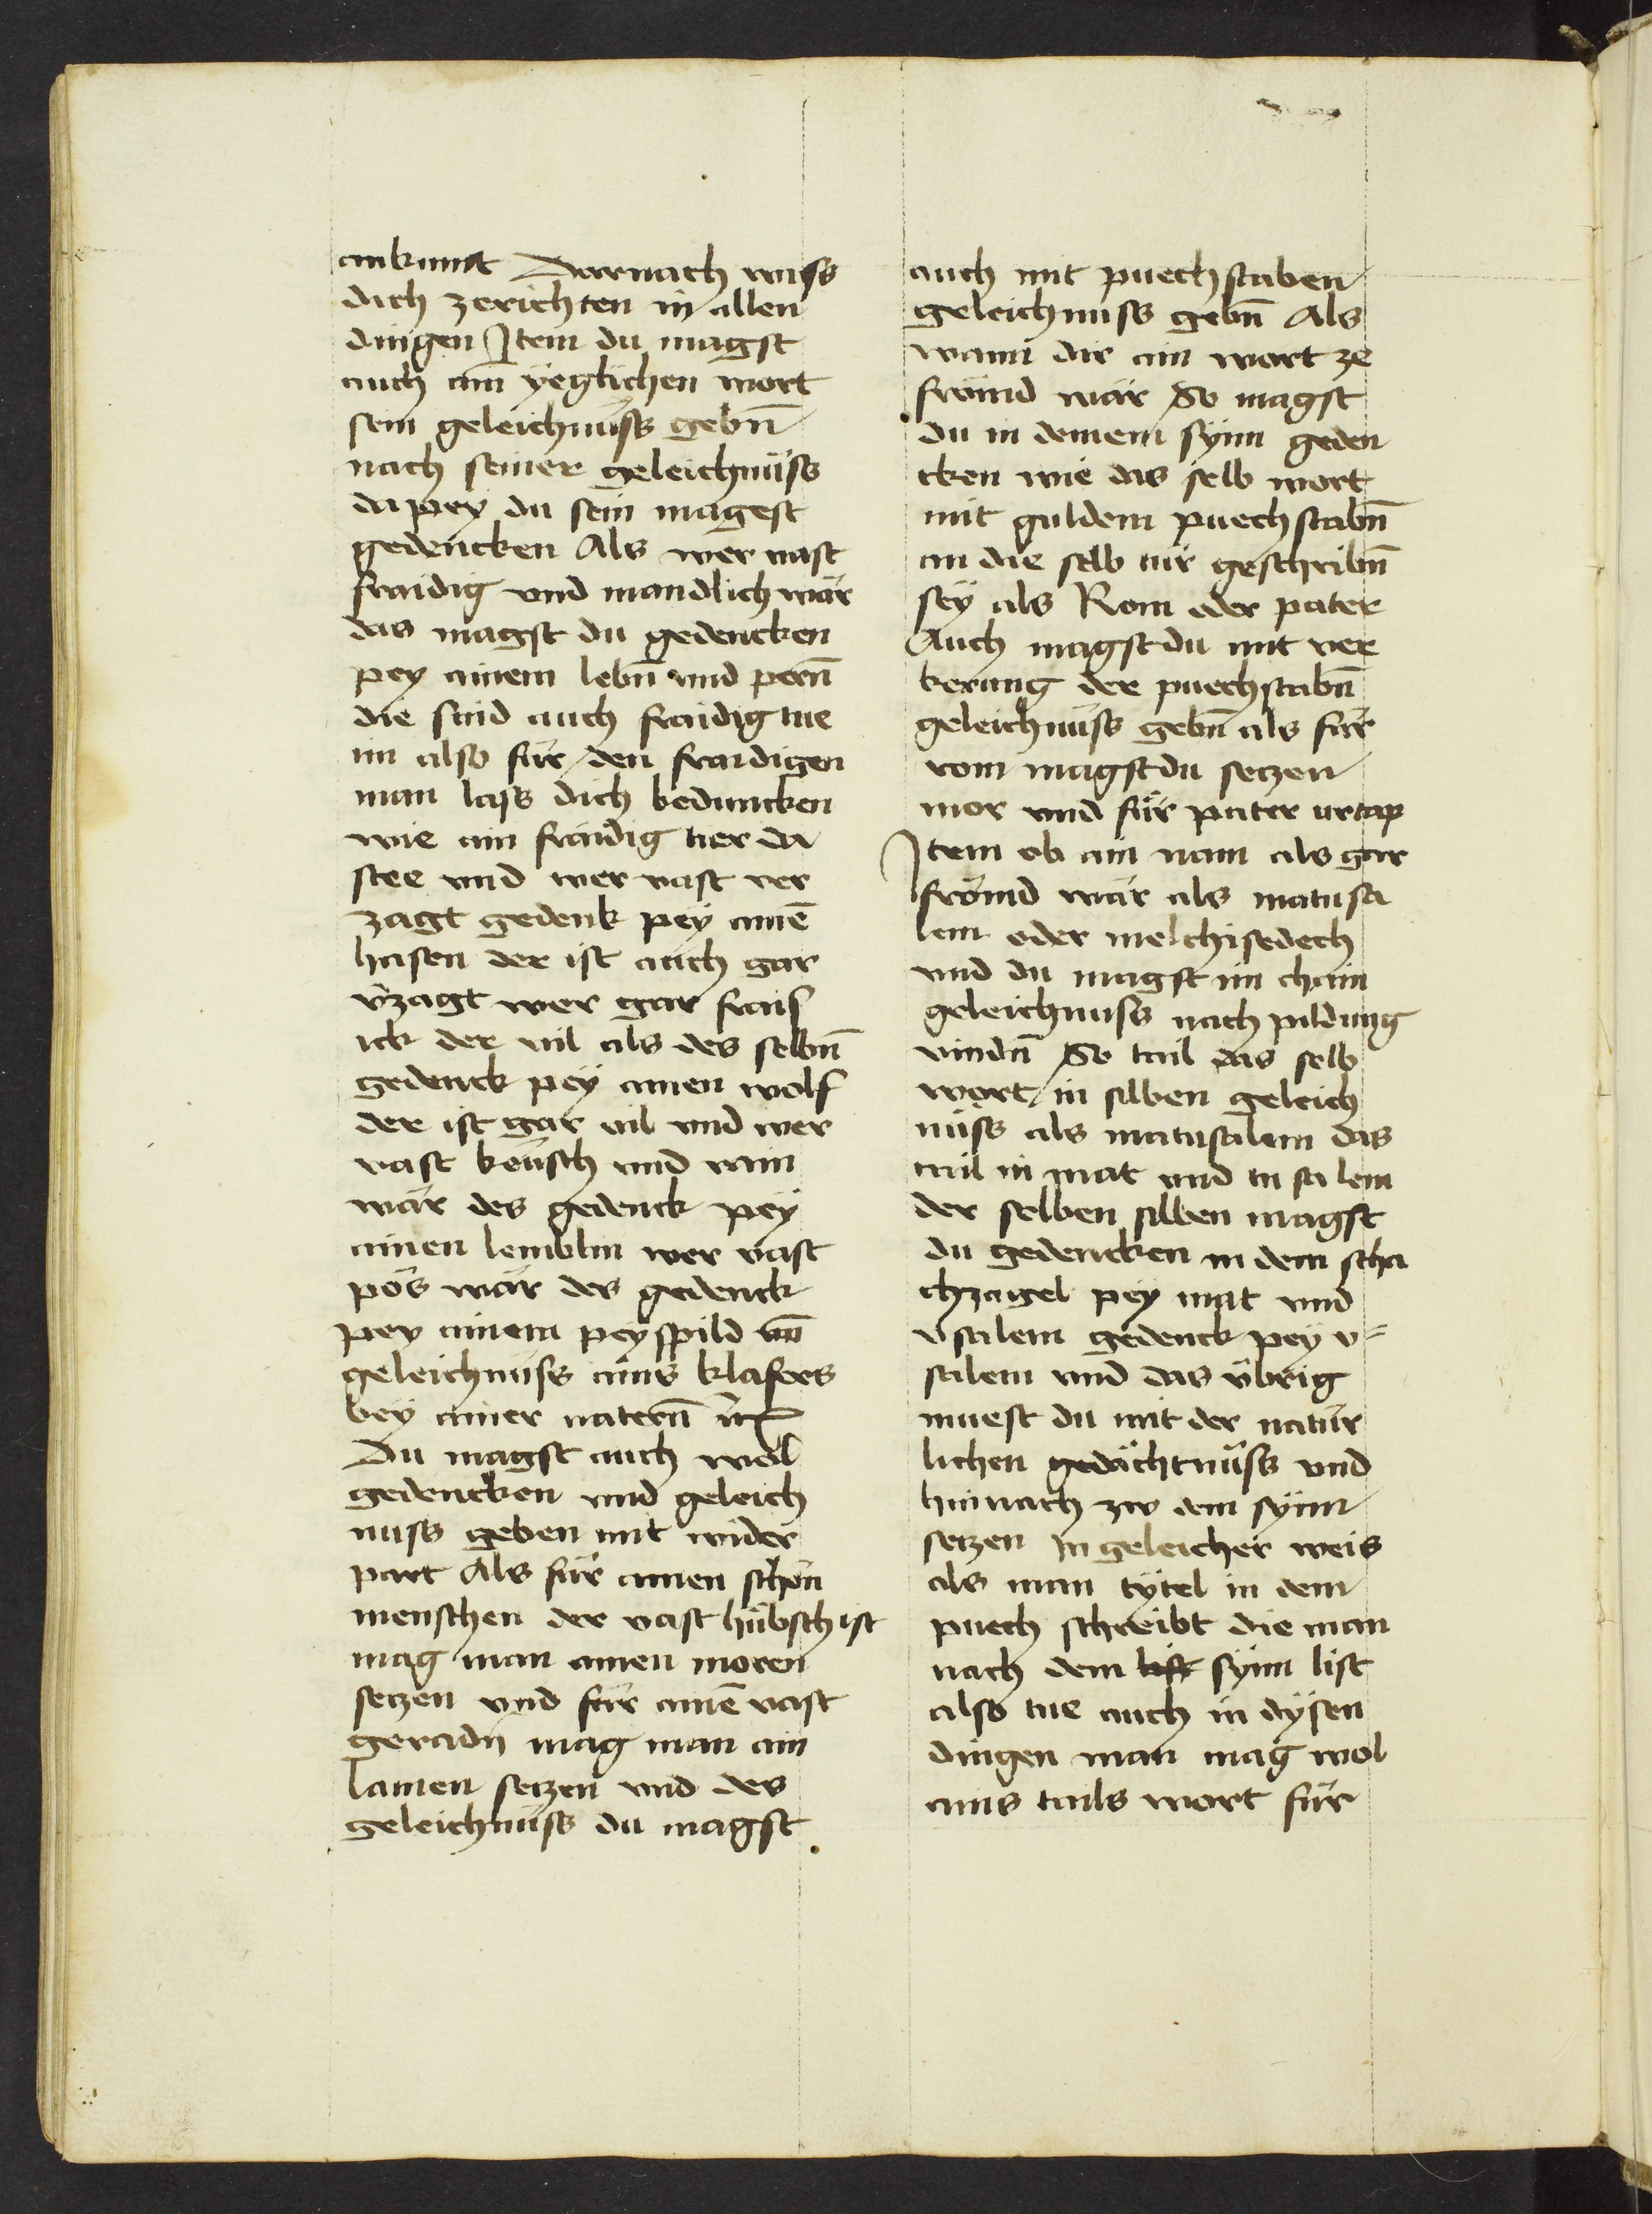 ankumt Darnach wiss
dich zerichten in allen
dingen Item du magst
auch aim yeglichen wort
sein geleichnuss gebn̄
nach seiner geleichnüss
da pey du sein magest
gedencken Als wer vast
fraidig vnd mandlich wär
das magst du gedencken
pey ainem lebn̄ vnd pern̄
die sind auch fraidig tue
im also für den fraidigen
man lass dich beduncken
wie ain fraidig tier da
stee vnd wer vast ver
zagt gedenk pey ainē
hasen der ist auch gar
v̈zagt wer gar frais
ick der vil als des selbn̄
gedenck pey ainen wolf
der ist gar vil vnd wer
vast keüsch vnd rain
wär des gedenck pey
ainen lemblin wer vast
pös wär des gedenck
pey ainem peyspild vn̄
geleichnüss ains klafers
bey ainer natern̄ ic
Du magst auch wol
gedencken vnd geleich
nuss geben mit wider
part Als für ainen schön
menschen der vast hübsch ist
mag man ainen moren
setzen vnd für ainē vast
geradn̄ mag man ain
lamen setzen vnd des
geleichnüss du magst
auch mit puechstaben
geleichnuss gebn̄ Als
wann dir ain wort ze
frömd wär So magst
du in deinem synn geden
cken wie das selb wort
mit guldem puechstabn̄
an die selb tür geschribn̄
sey als Rom oder pater
Auch magst du mit ver
kerung der puechstabn̄
geleichnüss gebn̄ als für
rom magst du setzen
mor vnd für pater retap
Item ob ain nam als gar
frömd wär als matusa
lem oder melchisedech
vnd du magst im chain
geleichnuss nach pildung
vindn̄ So tail das selb
wort in silben geleich
nüss als matusalem das
tail in mat vnd tu sa lem
der selben silben magst
du gedencken in dem scha
chzagel pey mat vnd
v̈salem gedenck pey v̈
salem vnd das v̈brig
muest du mit der natür
lichen gedächtnüss vnd
hinnach zw dem synn
setzen In geleicher weis
als man tytel in dem
puech schreibt die man
nach dem list synn list
also tue auch in dysen
dingen man mag wol
ains tails wort für